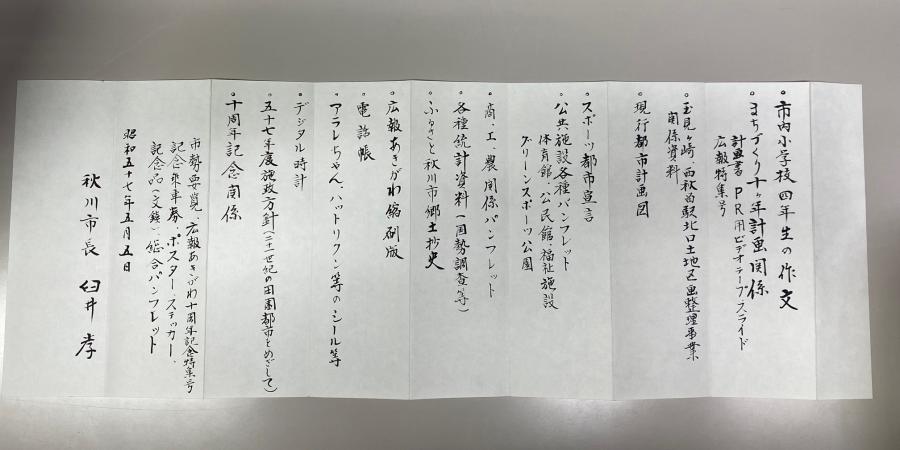 ○市内小学校四年生の作文
○まちづくり十ヶ年計画関係
計画書 PR用ビデオテープ・スライド
広報特集号
○玉見ヶ崎、西秋留駅北口土地区画整理事業
関係資料
○現行都市計画図
○スポーツ都市宣言
○公共施設各種パンフレット
体育館・公民館・福祉施設
グリーンスポーツ公園
○商、工、農関係パンフレット
○各種統計資料(国勢調査等)
○ふるさと秋川市郷土抄史
○広報あきがわ縮刷版
○電話帳
○アラレちゃん、ハットリクン等のシール等
○デジタル時計
○五十七年度施政方針(二十一世紀の田園都市をめざして)
○十周年記念関係
市勢要覧、広報あきがわ十周年記念特集号
記念乗車券、ポスター、ステッカー、
記念品(文鎮)、総合パンフレット
昭和五十七年五月五日
秋川市長 臼井孝